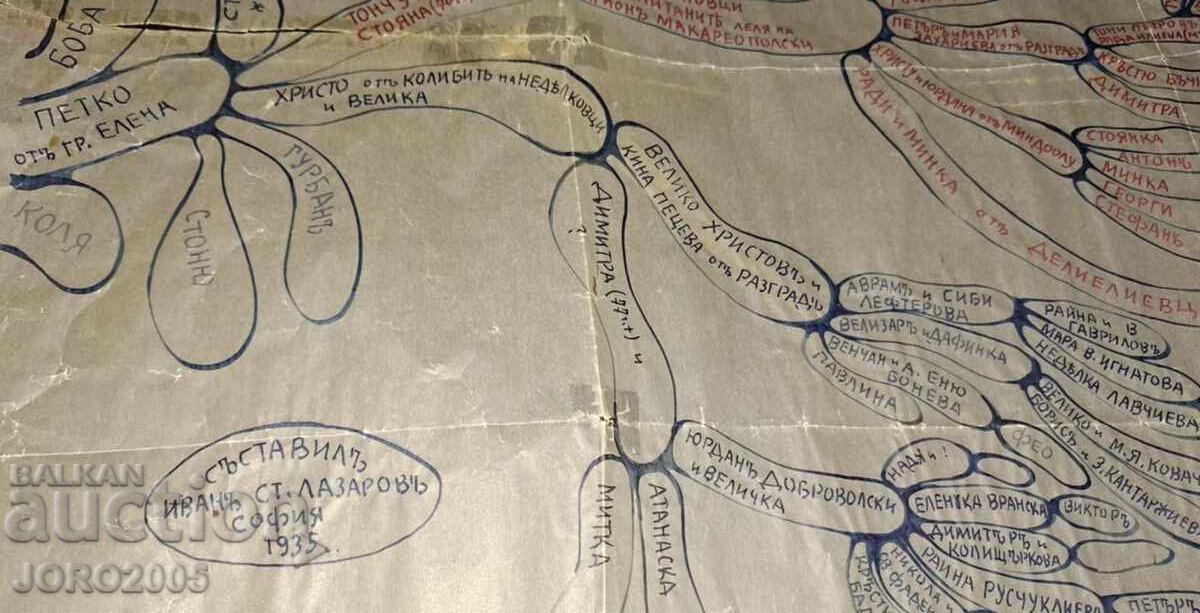 БОБА
ТОНЧУ
СТОЯНА
МАКАРЕОПОЛСКИ
ЛЕЛЯ НА
ПЕТЪР И МАРИЯ
ЗАХАРИЕВА отъ РАЗГРАДЪ
КРЪСТЮ БЪЧ
ДИМИТРА
ХРИСТУ И ЮРДАНА отъ МИНДРОЛУ
СТОЯНКА
АНТОНЪ
МИНКА
ГЕОРГИ
СТЕФАНЪ
РАДИ И МИНКА отъ ДЕЛИЕЛИЕВЦИ
ПЕТКО
отъ ГР. ЕЛЕНА
ХРИСТО отъ КОЛИБИТЬ на НЕДѢЛКОВЦИ
и ВЕЛИКА
КОЛЯ
СТОЙНЮ
ГУРБАНЪ
ДИМИТРА (77г.+) и
?
ВЕЛИКО ХРИСТОВЪ и
КИНА ПЕЦЕВА отъ РАЗГРАДЪ
АВРАМЪ и СИБИ
ЛЕФТЕРОВА
РАЙНА и В
ГАВРИЛОВЪ
МАРА В. ИГНАТОВА
НЕДѢЛКА ЛАВЧИЕВА
ВЕЛИЗАРЪ и ДАФИНКА
ВЕЛИКО и М.Я. КОВАЧ
БОРИСЪ и З. КАНТАРЖИЕВА
ВЕНЧАН и А. ЕНЮ
БОНЕВА
ПАВЛИНА
ФЕО
ЮРДАНЪ ДОБРОВОЛСКИ
и ВЕЛИЧКА
НАДЯ и !
ЕЛЕНКА ВРАНСКА
ВИКТОРЪ
ДИМИТЪРЪ и
КОЛИЩЪРКОВА
РАИНА РУСЧУКЛИЕВ
НИКОЛА и
ПЕТЪРЪ
МИТКА
АТАНАСКА
СЪСТАВИЛЪ
ИВАНЪ СТ. ЛАЗАРОВЪ
СОФИЯ
1935.
BALKAN
auction
JORO2005